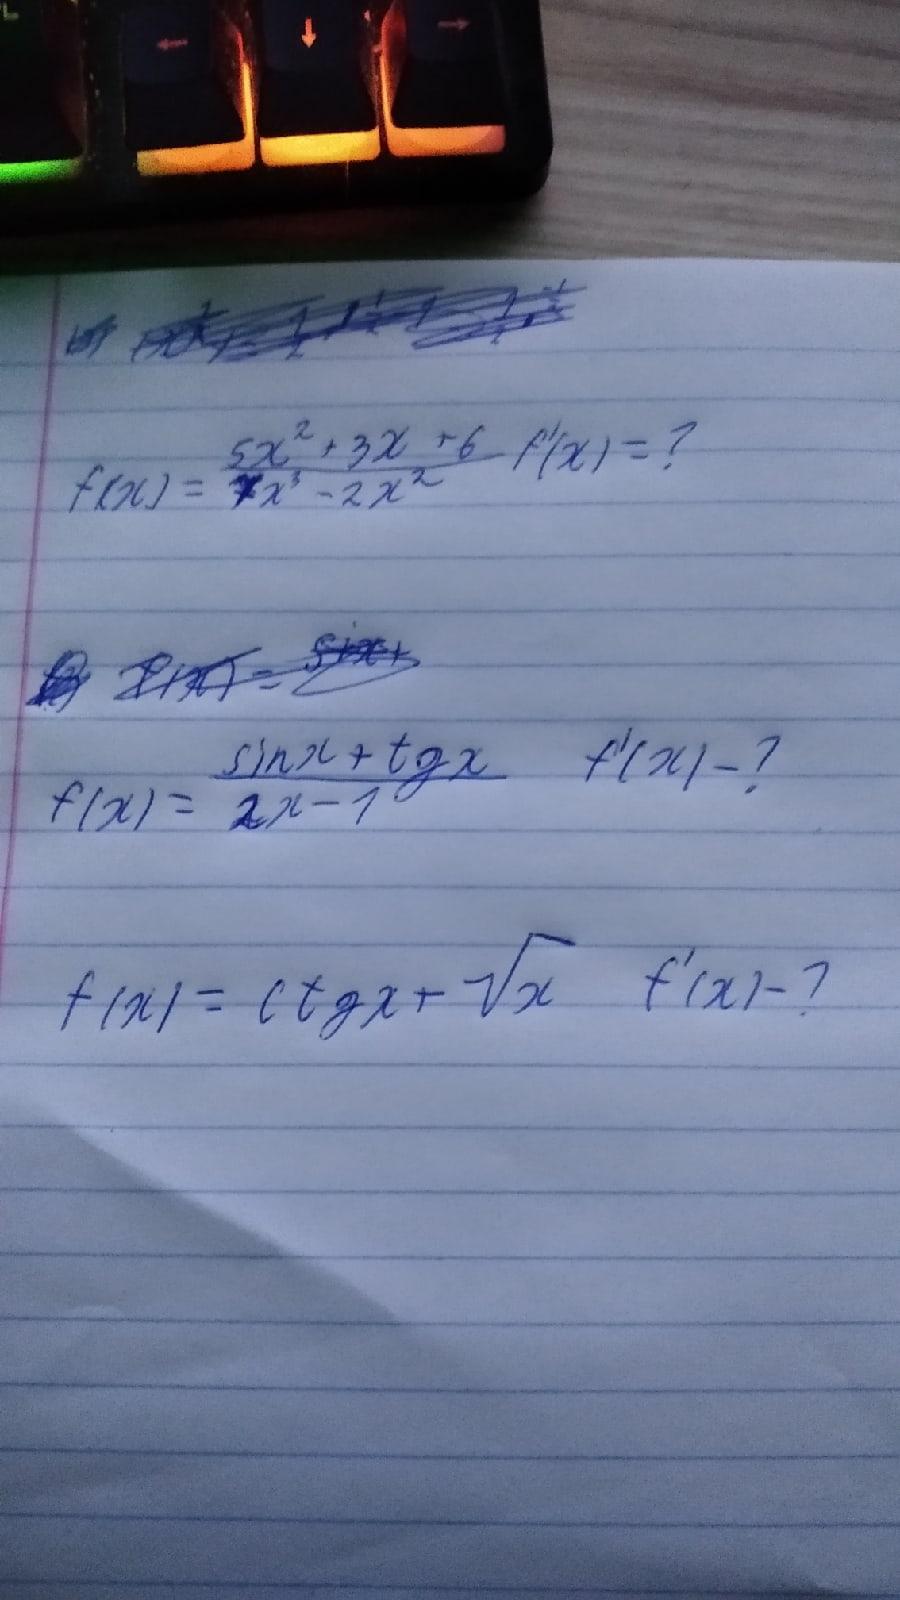 f(x) = (5x² + 3x + 6)/(7x³ - 2x²) f'(x) = ?
f(x) = (sinx + tgx)/(2x - 1) f'(x) - ?
f(x) = ctgx + √x f'(x) - ?